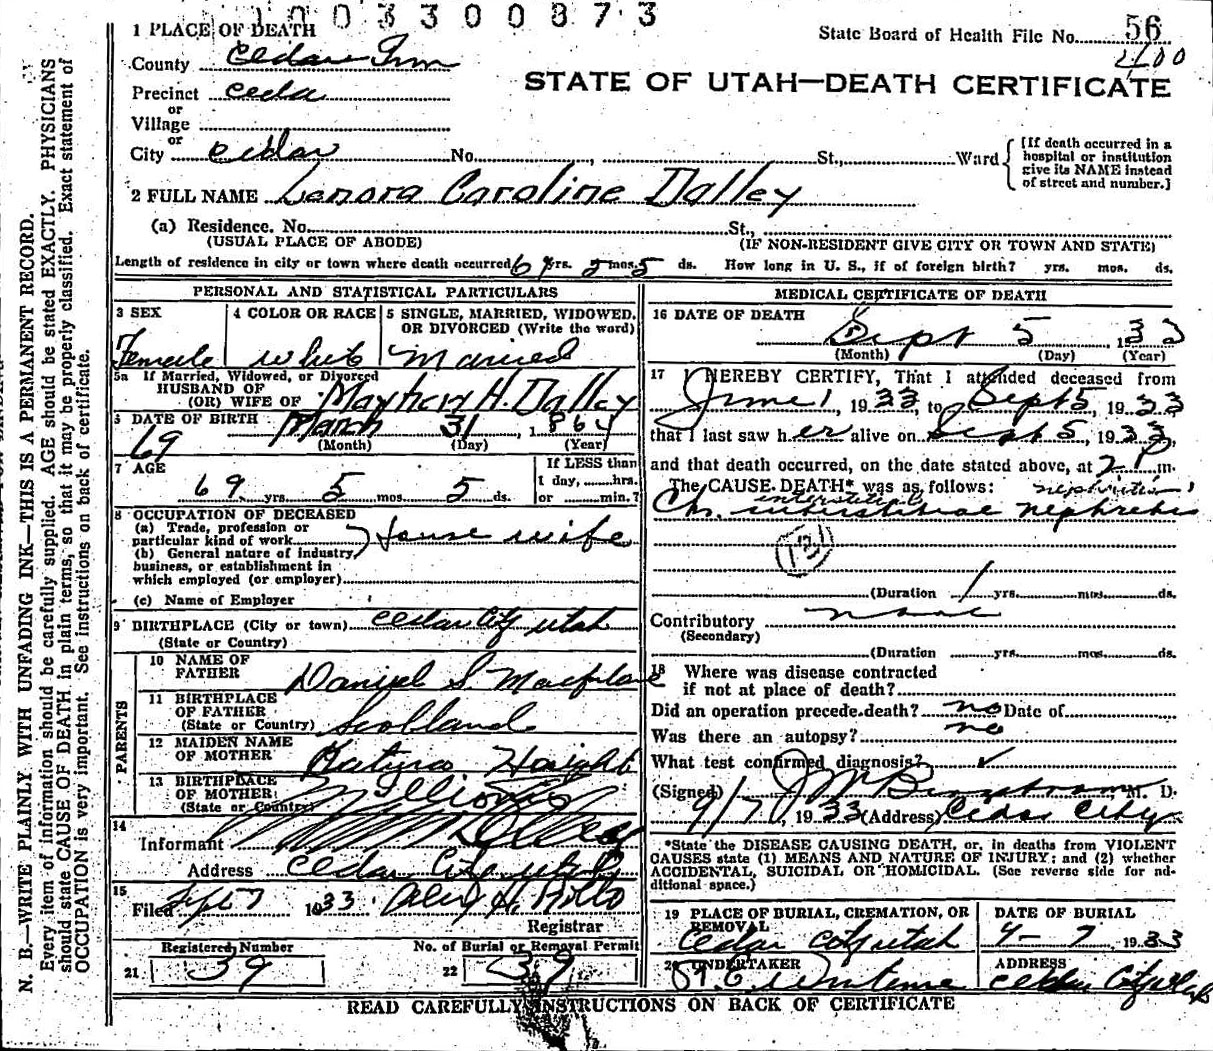 1003300873
1 PLACE OF DEATH
State Board of Health File No. 56
2600
County Cedar Iron
STATE OF UTAH—DEATH CERTIFICATE
Precinct Ceda
or
Village
or
City Cedar No. , St., Ward
[If death occurred in a hospital or institution give its NAME instead of street and number.]
2 FULL NAME Lenora Caroline Dalley
(a) Residence. No. St.,
(USUAL PLACE OF ABODE) (IF NON-RESIDENT GIVE CITY OR TOWN AND STATE)
Length of residence in city or town where death occurred 69 yrs. 5 mos. 5 ds. How long in U. S., if of foreign birth? yrs. mos. ds.
PERSONAL AND STATISTICAL PARTICULARS
3 SEX
Female
4 COLOR OR RACE
whit
5 SINGLE, MARRIED, WIDOWED, OR DIVORCED (Write the word)
Married
5a If Married, Widowed, or Divorced
HUSBAND OF
(OR) WIFE OF Mayhew H. Dalley
6 DATE OF BIRTH March 31, 1864
69
(Month) (Day) (Year)
7 AGE
69 yrs. 5 mos. 5 ds.
If LESS than
1 day, hrs.
or min.?
8 OCCUPATION OF DECEASED
(a) Trade, profession or
particular kind of work House wife
(b) General nature of industry,
business, or establishment in
which employed (or employer)
(c) Name of Employer
9 BIRTHPLACE (City or town) Cedar City Utah
(State or Country)
PARENTS
10 NAME OF
FATHER Daniel S. Macfarlane
11 BIRTHPLACE
OF FATHER
(State or Country) Scotland
12 MAIDEN NAME
OF MOTHER Haight
13 BIRTHPLACE
OF MOTHER
(State or Country) Illionis
14
Informant
Address Cedar City Utah
15
Filed Sept 7 1933
Registrar
Registered Number
21 39
No. of Burial or Removal Permit
22 39
MEDICAL CERTIFICATE OF DEATH
16 DATE OF DEATH
Sept 5, 1933
(Month) (Day) (Year)
17 I HEREBY CERTIFY, That I attended deceased from
June 1, 1933, to Sept 5, 1933
that I last saw her alive on Sept 5, 1933
and that death occurred, on the date stated above, at 2 P m.
The CAUSE DEATH* was as follows:
interstitial nephritis
Ch. interstitial nephritis
131
(Duration 1 yrs. mos. ds.
Contributory none
(Secondary)
(Duration yrs. mos. ds.
18 Where was disease contracted
if not at place of death?
Did an operation precede death? no Date of
Was there an autopsy? no
What test confirmed diagnosis? ✓
(Signed) , M. D.
9/7, 1933 (Address) Cedar City
*State the DISEASE CAUSING DEATH, or, in deaths from VIOLENT
CAUSES state (1) MEANS AND NATURE OF INJURY; and (2) whether
ACCIDENTAL, SUICIDAL OR HOMICIDAL. (See reverse side for ad-
ditional space.)
19 PLACE OF BURIAL, CREMATION, OR
REMOVAL
Cedar City Utah
DATE OF BURIAL
9-7, 1933
20 UNDERTAKER
ADDRESS
Cedar City Utah
READ CAREFULLY INSTRUCTIONS ON BACK OF CERTIFICATE
N. B.—WRITE PLAINLY WITH UNFADING INK—THIS IS A PERMANENT RECORD.
Every item of information should be carefully supplied. AGE should be stated EXACTLY. PHYSICIANS
should state CAUSE OF DEATH in plain terms, so that it may be properly classified. Exact statement of
OCCUPATION is very important. See instructions on back of certificate.